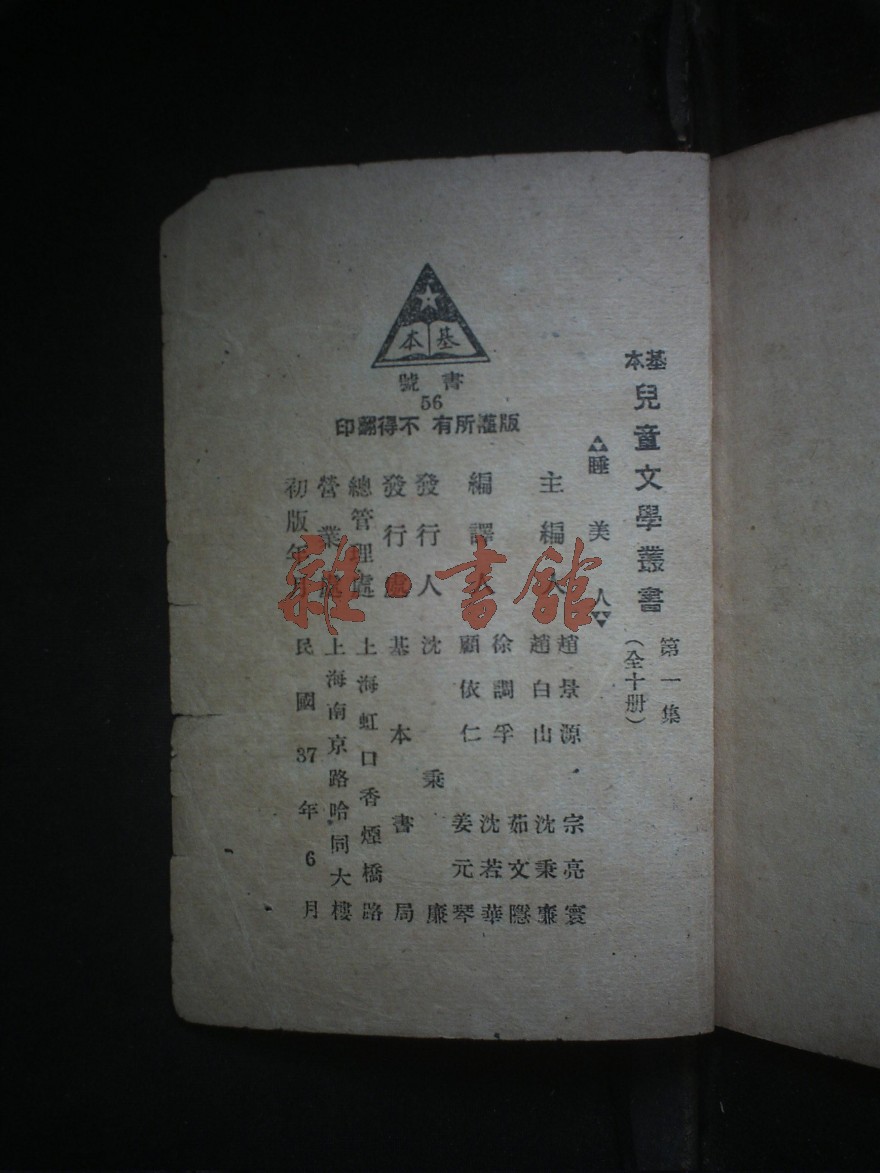 基本
兒童文學叢書
第一集
（全十册）
睡美人
基本
書號
56
版權所有 不得翻印
主編人
趙景源 宗亮寰
趙白山 沈秉廉
編譯人
茹文隱
徐調孚 沈若華
顧依仁 姜元琴
發行人 沈秉廉
發行處 基本書局
總管理處 上海虹口香煙橋路
營業處 上海南京路哈同大樓
初版年月 民國37年6月
雜·書館